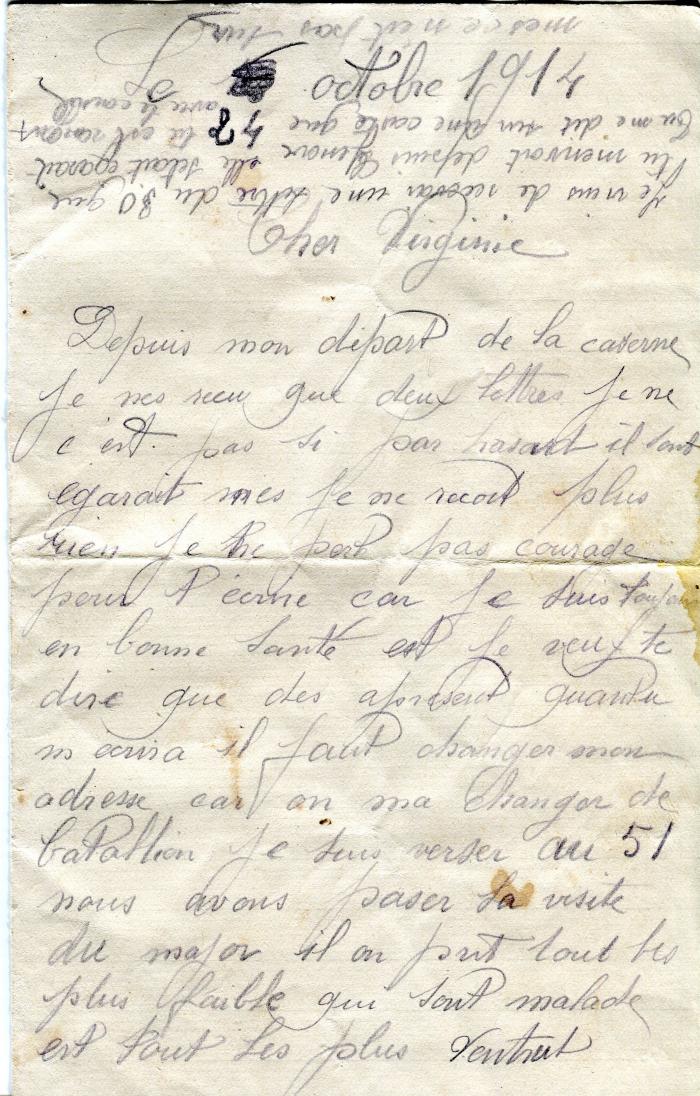 octobre 1914
Cher Virginie
Depuis mon dépard de la caserne
Je nes recu que deux lettres je ne
c'est pas si par hasard il sont
egarait mes je ne recoit plus
rien je ne pert pas courage
pour t'écrire car je suis toujour
en bonne santé est je veux te
dire que des apresent quantu
m'ecrira il faut changer mon
adresse car on ma changer de
batallion je suis verser au 51
nous avons paser la visite
du major il on prit tout les
plus faible qui sont malade
est tout les plus
Je viens de recevoir une lettre du 30 que
tu menvoit depuis elle setait egarait
Tu me dit sur une carte que tu est
avec le
mes ce n'est pas sur